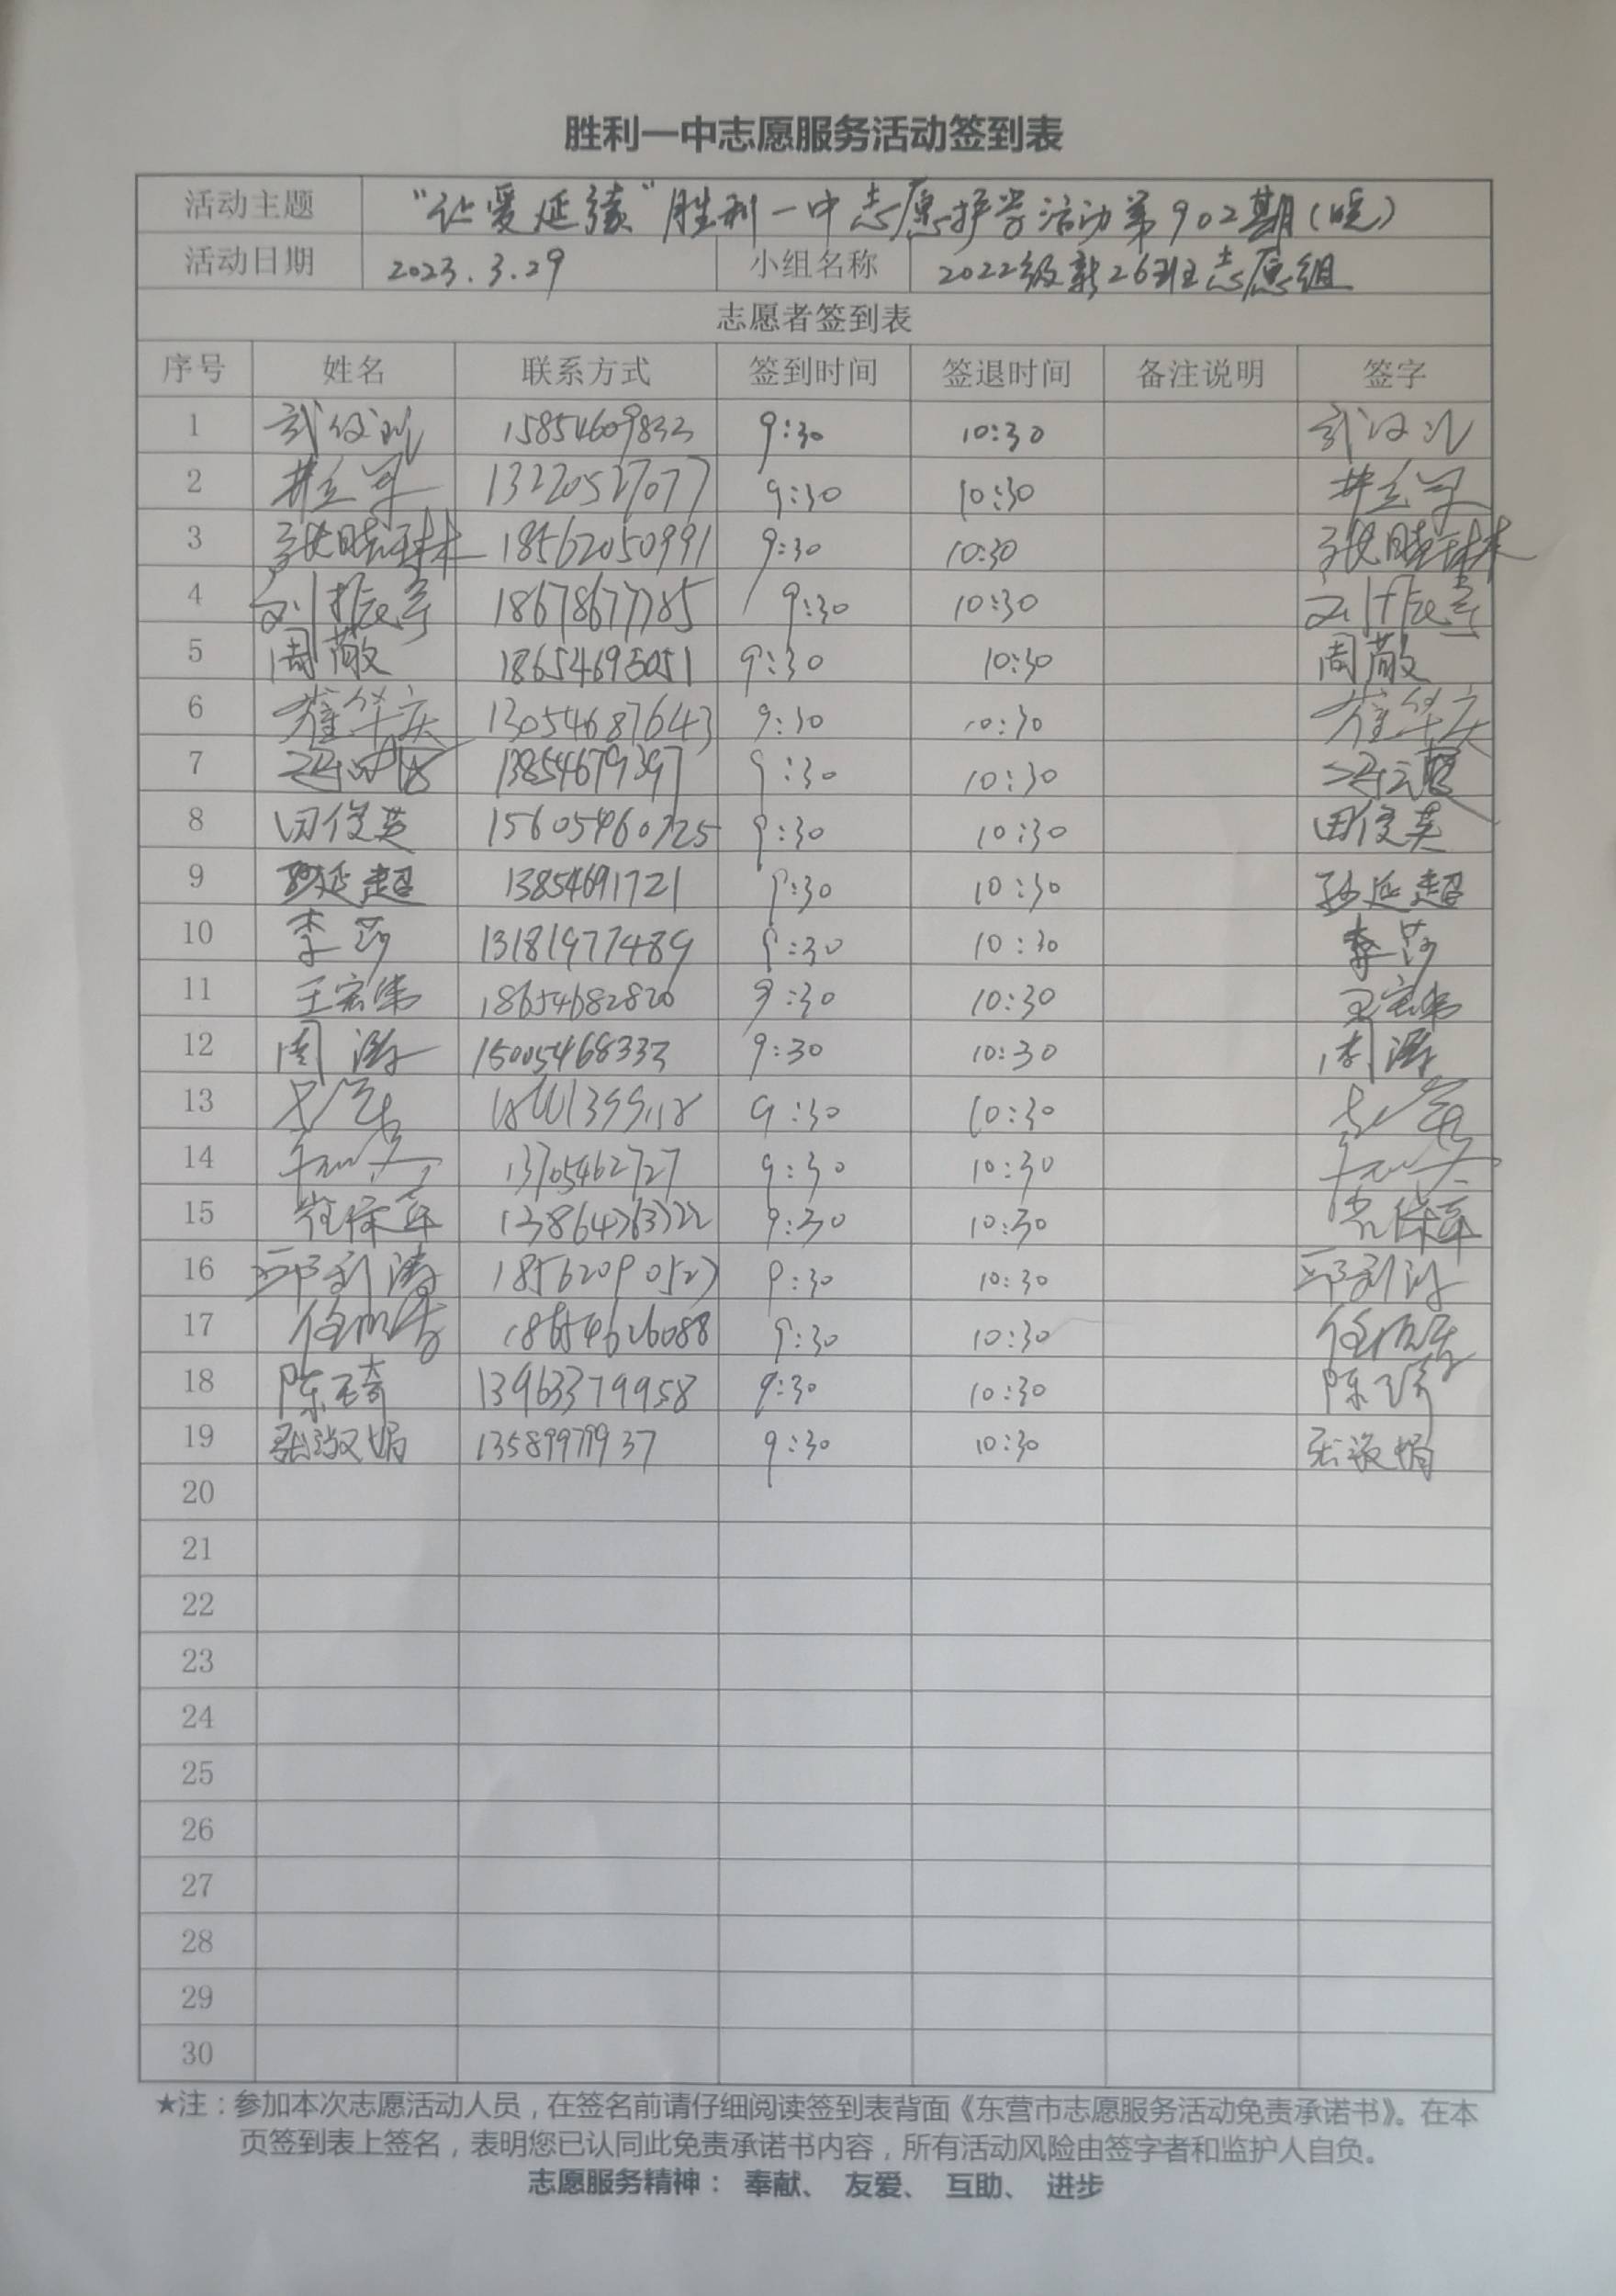 胜利一中志愿服务活动签到表
活动主题 “让爱延续”胜利一中志愿护学活动第902期(晚)
活动日期 2023.3.29 小组名称 2022级新26班志愿组
志愿者签到表
序号 姓名 联系方式 签到时间 签退时间 备注说明 签字
1 15854609833 9:30 10:30
2 13220527077 9:30 10:30
3 张晓琳 18562050991 9:30 10:30 张晓琳
4 18678677785 9:30 10:30
5 周敬 18654695051 9:30 10:30 周敬
6 崔华庆 13054687643 9:30 10:30 崔华庆
7 13854679397 9:30 10:30
8 田俊英 15605460725 9:30 10:30 田俊英
9 孙延超 13854691721 9:30 10:30 孙延超
10 李莎 13181977489 9:30 10:30 李莎
11 王宏伟 18654682820 9:30 10:30 王宏伟
12 周涛 15005468333 9:30 10:30 周涛
13 9:30 10:30
14 13705462727 9:30 10:30
15 9:30 10:30
16 邱利涛 9:30 10:30 邱利涛
17 18654626088 9:30 10:30
18 陈琦 13963379958 9:30 10:30 陈琦
19 张淑娟 13589979937 9:30 10:30 张淑娟
20
21
22
23
24
25
26
27
28
29
30
★注：参加本次志愿活动人员，在签名前请仔细阅读签到表背面《东营市志愿服务活动免责承诺书》。在本
页签到表上签名，表明您已认同此免责承诺书内容，所有活动风险由签字者和监护人自负。
志愿服务精神： 奉献、 友爱、 互助、 进步